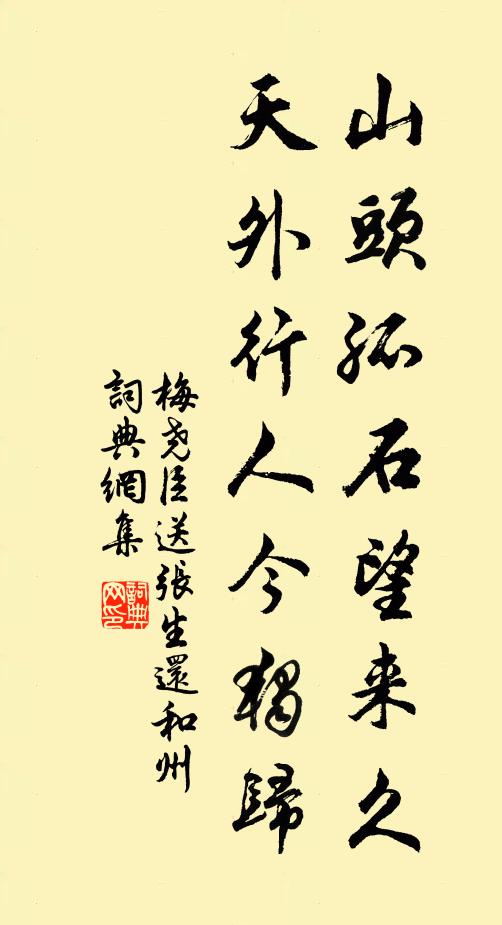 山頭孤石望来久
天外行人今獨歸
梅尧臣送張生還和州
詞典網集
詞典网印